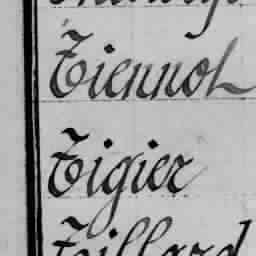 Tiennot
Tigier
Tillard